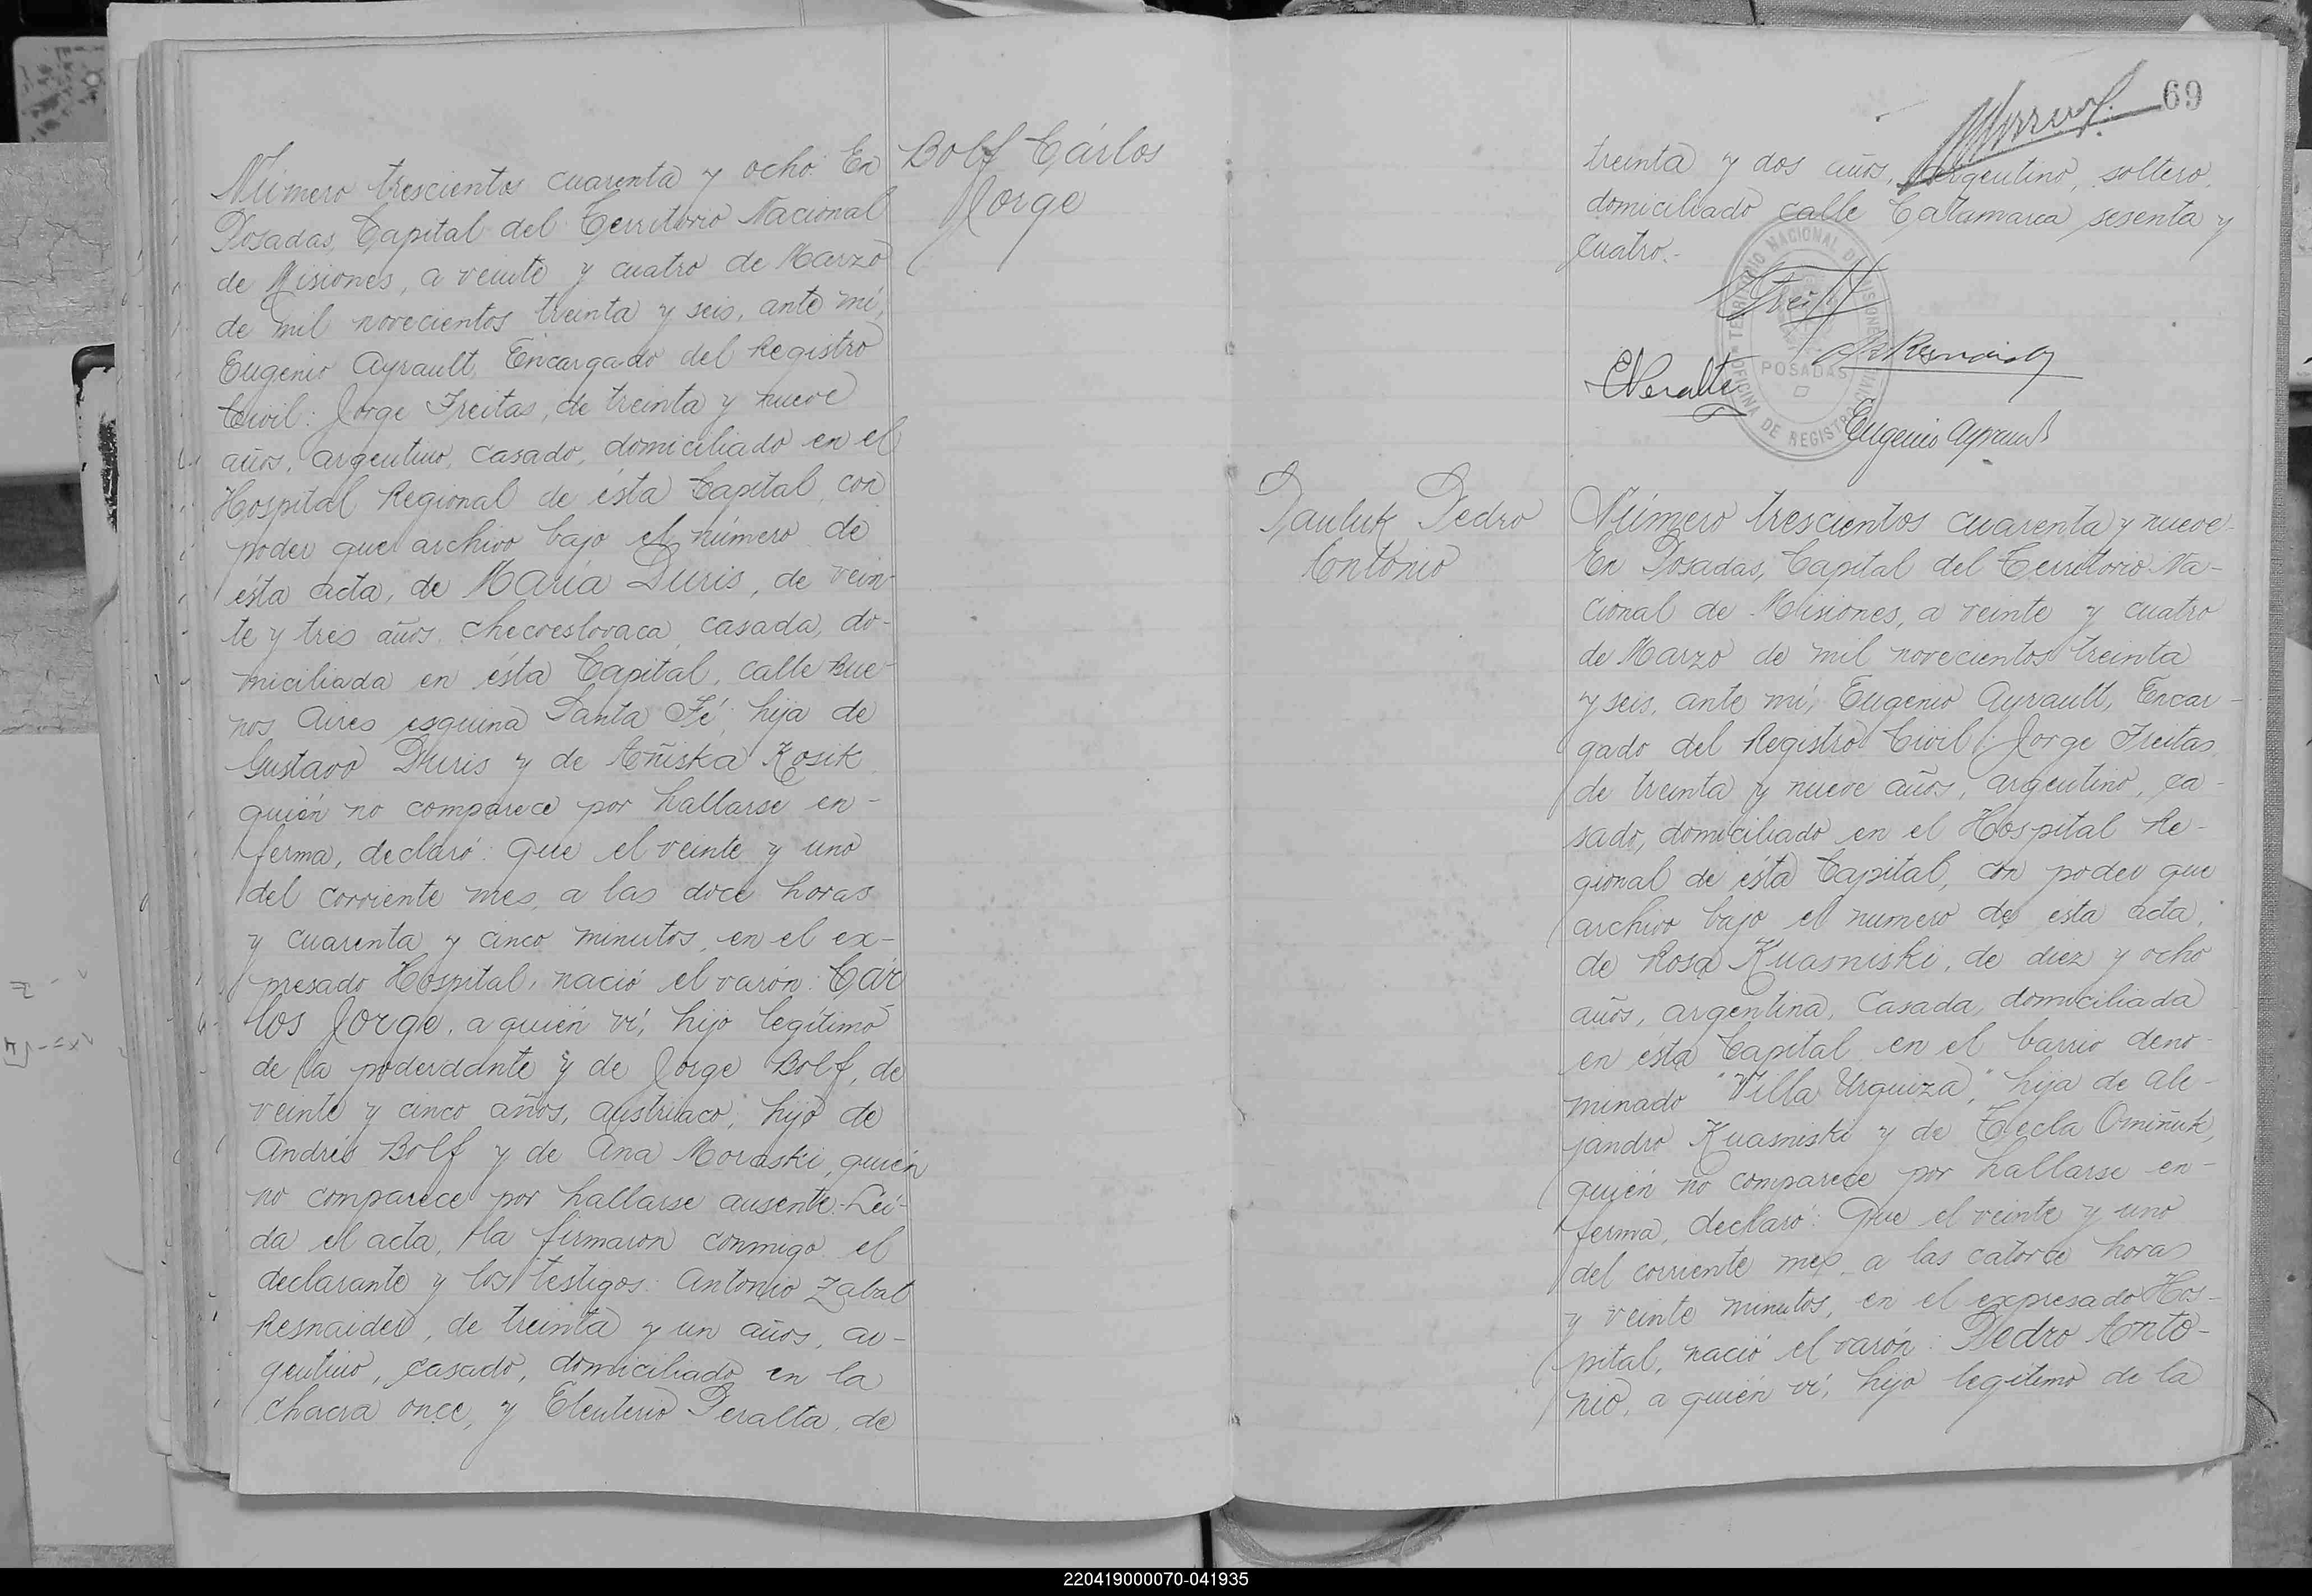 Número trescientos cuarenta y ocho. En
Posadas, Capital del Territorio Nacional
de Misiones, a veinte y cuatro de Marzo
de mil novecientos treinta y seis, ante mí,
Eugenio Ayrault, Encargado del Registro
Civil: Jorge Freitas, de treinta y nueve
años, argentino, casado, domiciliado en el
Hospital Regional de ésta Capital, con
poder que archivo bajo el número de
ésta acta, de María Duris, de vein-
te y tres años, checoeslovaca, casada, do-
miciliada en ésta Capital, calle Bue-
nos Aires esquina Santa Fé, hija de
Gustavo Duris y de Añiska Kosik,
quién no comparece por hallarse en-
ferma, declaró: Que el veinte y uno
del corriente mes, a las doce horas
y cuarenta y cinco minutos, en el ex-
presado Hospital, nació el varón: Cár
los Jorge, a quién ví, hijo legítimo
de la poderdante y de Jorge Bolf, de
veinte y cinco años, austriaco, hijo de
Andrés Bolf y de Ana Moraski, quién
no comparece por hallarse ausente.- Leí-
da el acta, la firmaron conmigo el
declarante y los testigos: Antonio Zabal
Resnaider, de treinta y un años, ar-
gentino, casado, domiciliado en la
chacra once, y Eleuterio Peralta, de
Bolf Cárlos
Jorge
69
treinta y dos años, argentino, soltero,
domiciliado calle Catamarca sesenta y
cuatro.-
TERRITORIO NACIONAL DE MISIONES
POSADAS
OFICINA DE REGISTRO
EPeralta
Eugenio Ayrault
Pauluk Pedro
Antonio
Número trescientos cuarenta y nueve.
En Posadas, Capital del Territorio Na-
cional de Misiones, a veinte y cuatro
de Marzo de mil novecientos treinta
y seis, ante mí, Eugenio Ayrault, Encar-
gado del Registro Civil: Jorge Freitas,
de treinta y nueve años, argentino, ca-
sado, domiciliado en el Hospital Re-
gional de ésta Capital, con poder que
archivo bajo el numero de esta acta,
de Rosa Kuasniski, de diez y ocho
años, argentina, casada, domiciliada
en ésta Capital en el barrio deno-
minado "Villa Urquiza", hija de Ale-
jandro Kuasniski y de Tecla Omiñuk,
quién no comparece por hallarse en-
ferma, declaró: Que el veinte y uno
del corriente mes, a las catorce horas
y veinte minutos, en el expresado Hos-
pital, nació el varón: Pedro Anto-
nio, a quién ví, hijo legítimo de la
220419000070-041935